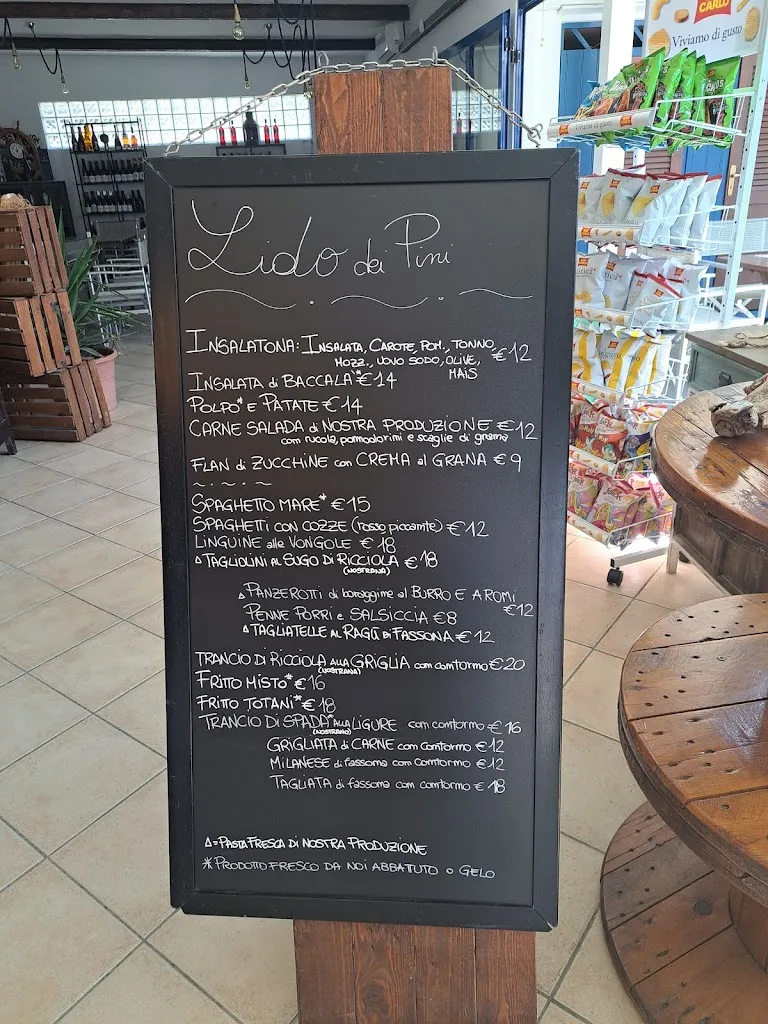 CARLO
Viviamo di gusto
Lido dei Pini
INSALATONA: INSALATA, CAROTE, POM., TONNO,
MOZZ., UOVO SODO, OLIVE, €12
MAIS
INSALATA di BACCALA'* €14
POLPO* E PATATE €14
CARNE SALADA di NOSTRA PRODUZIONE €12
con rucola, pomodorini e scaglie di grana
FLAN di ZUCCHINE con CREMA al GRANA €9
SPAGHETTO MARE* €15
SPAGHETTI CON COZZE (rosso piccante) €12
LINGUINE alle VONGOLE €18
Δ TAGLIOLINI AL SUGO DI RICCIOLA €18
(NOSTRANA)
Δ PANZEROTTI di borraggine al BURRO E AROMI
€12
PENNE PORRI e SALSICCIA €8
Δ TAGLIATELLE AL RAGÙ DI FASSONA €12
TRANCIO DI RICCIOLA ALLA GRIGLIA con contorno €20
(NOSTRANA)
FRITTO MISTO* €16
FRITTO TOTANI* €18
TRANCIO DI SPADA* ALLA LIGURE con contorno €16
(NOSTRANO)
GRIGLIATA di CARNE con contorno €12
MILANESE di fassona con contorno €12
TAGLIATA di fassona con contorno €18
Δ = PASTA FRESCA DI NOSTRA PRODUZIONE
* PRODOTTO FRESCO DA NOI ABBATUTO o GELO